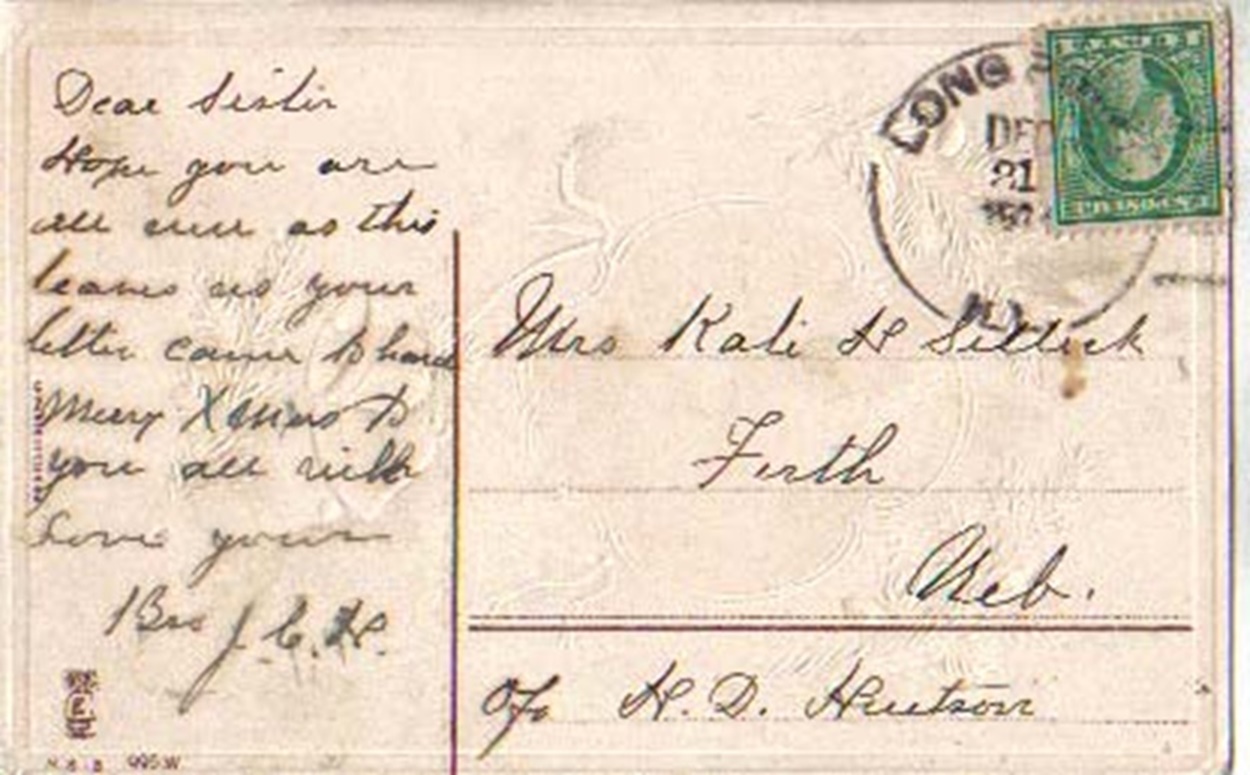 Dear Sister
Hope you are
all well as this
leaves us your
letter came to hand
Merry Xmas to
you all with
Love your
Bro J. C. H.
LONG
DEC
21
Mrs Kate H
Firth
Neb.
c/o H. D. Hutson